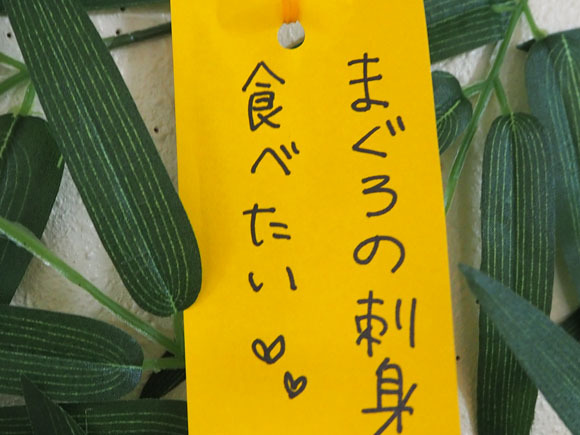 まぐろの刺身
食べたい♡♡